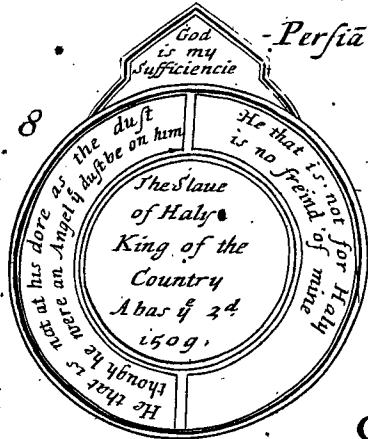 God
is my
Sufficiencie
-Perſiā
8
He that is not for Haly
is no freind of mine
He that is not at his dore as the duſt
though he were an Angel yᵉ duſt be on him
The Slave
of Haly
King of the
Country
Abas yᵉ 2ᵈ
1509.